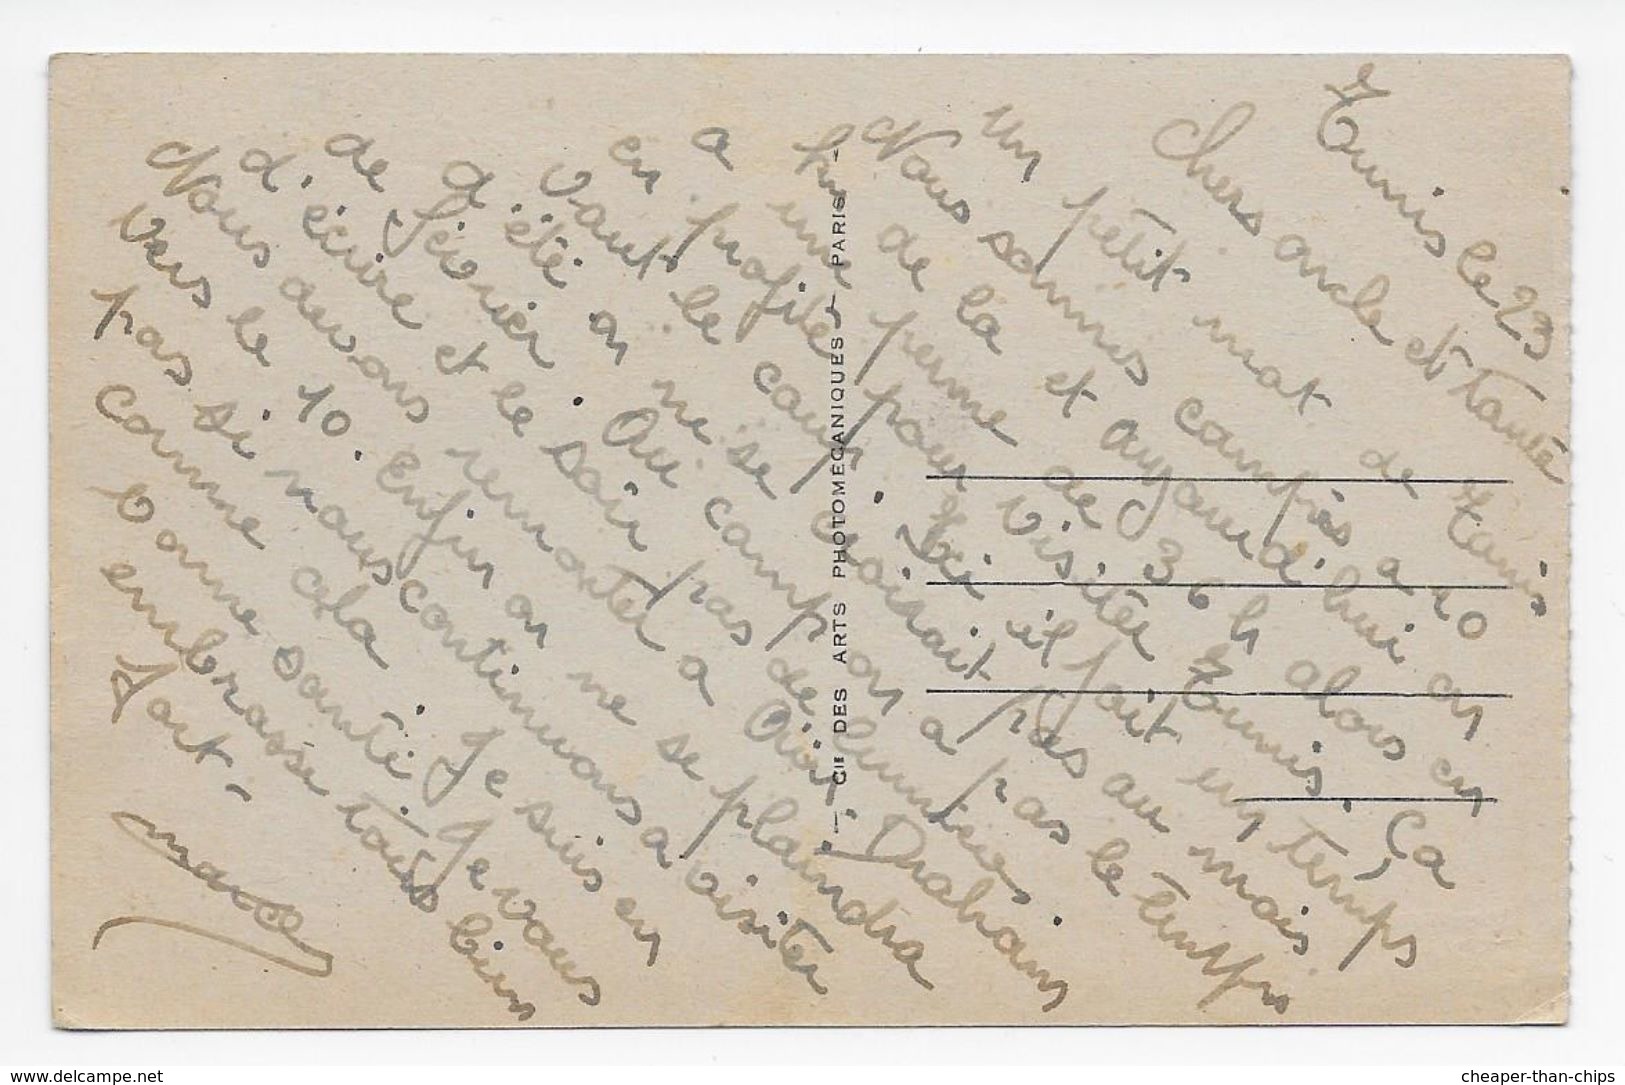 Tunis le 23
Chers oncle et tante
un petit mot de Tunis
Nous sommes campés a 20
km de la et aujourd'hui on
a une perme de 36 h alors on en
profite pour visiter Tunis. Ça
en vaut le coup. Ici il fait un temps
d'été on ne se croirait pas au mois
de février. Au camp on a pas le temps
d'écrire et le soir pas de lumière.
Nous devons remonter a Draham
vers le 10. Enfin on ne se plaindra
pas si nous continuons a visiter
comme cela. Je suis en
bonne santé. Je vous
embrasse tous bien
fort -
Cie DES ARTS PHOTOMECANIQUES - PARIS
www.delcampe.net
cheaper-than-chips